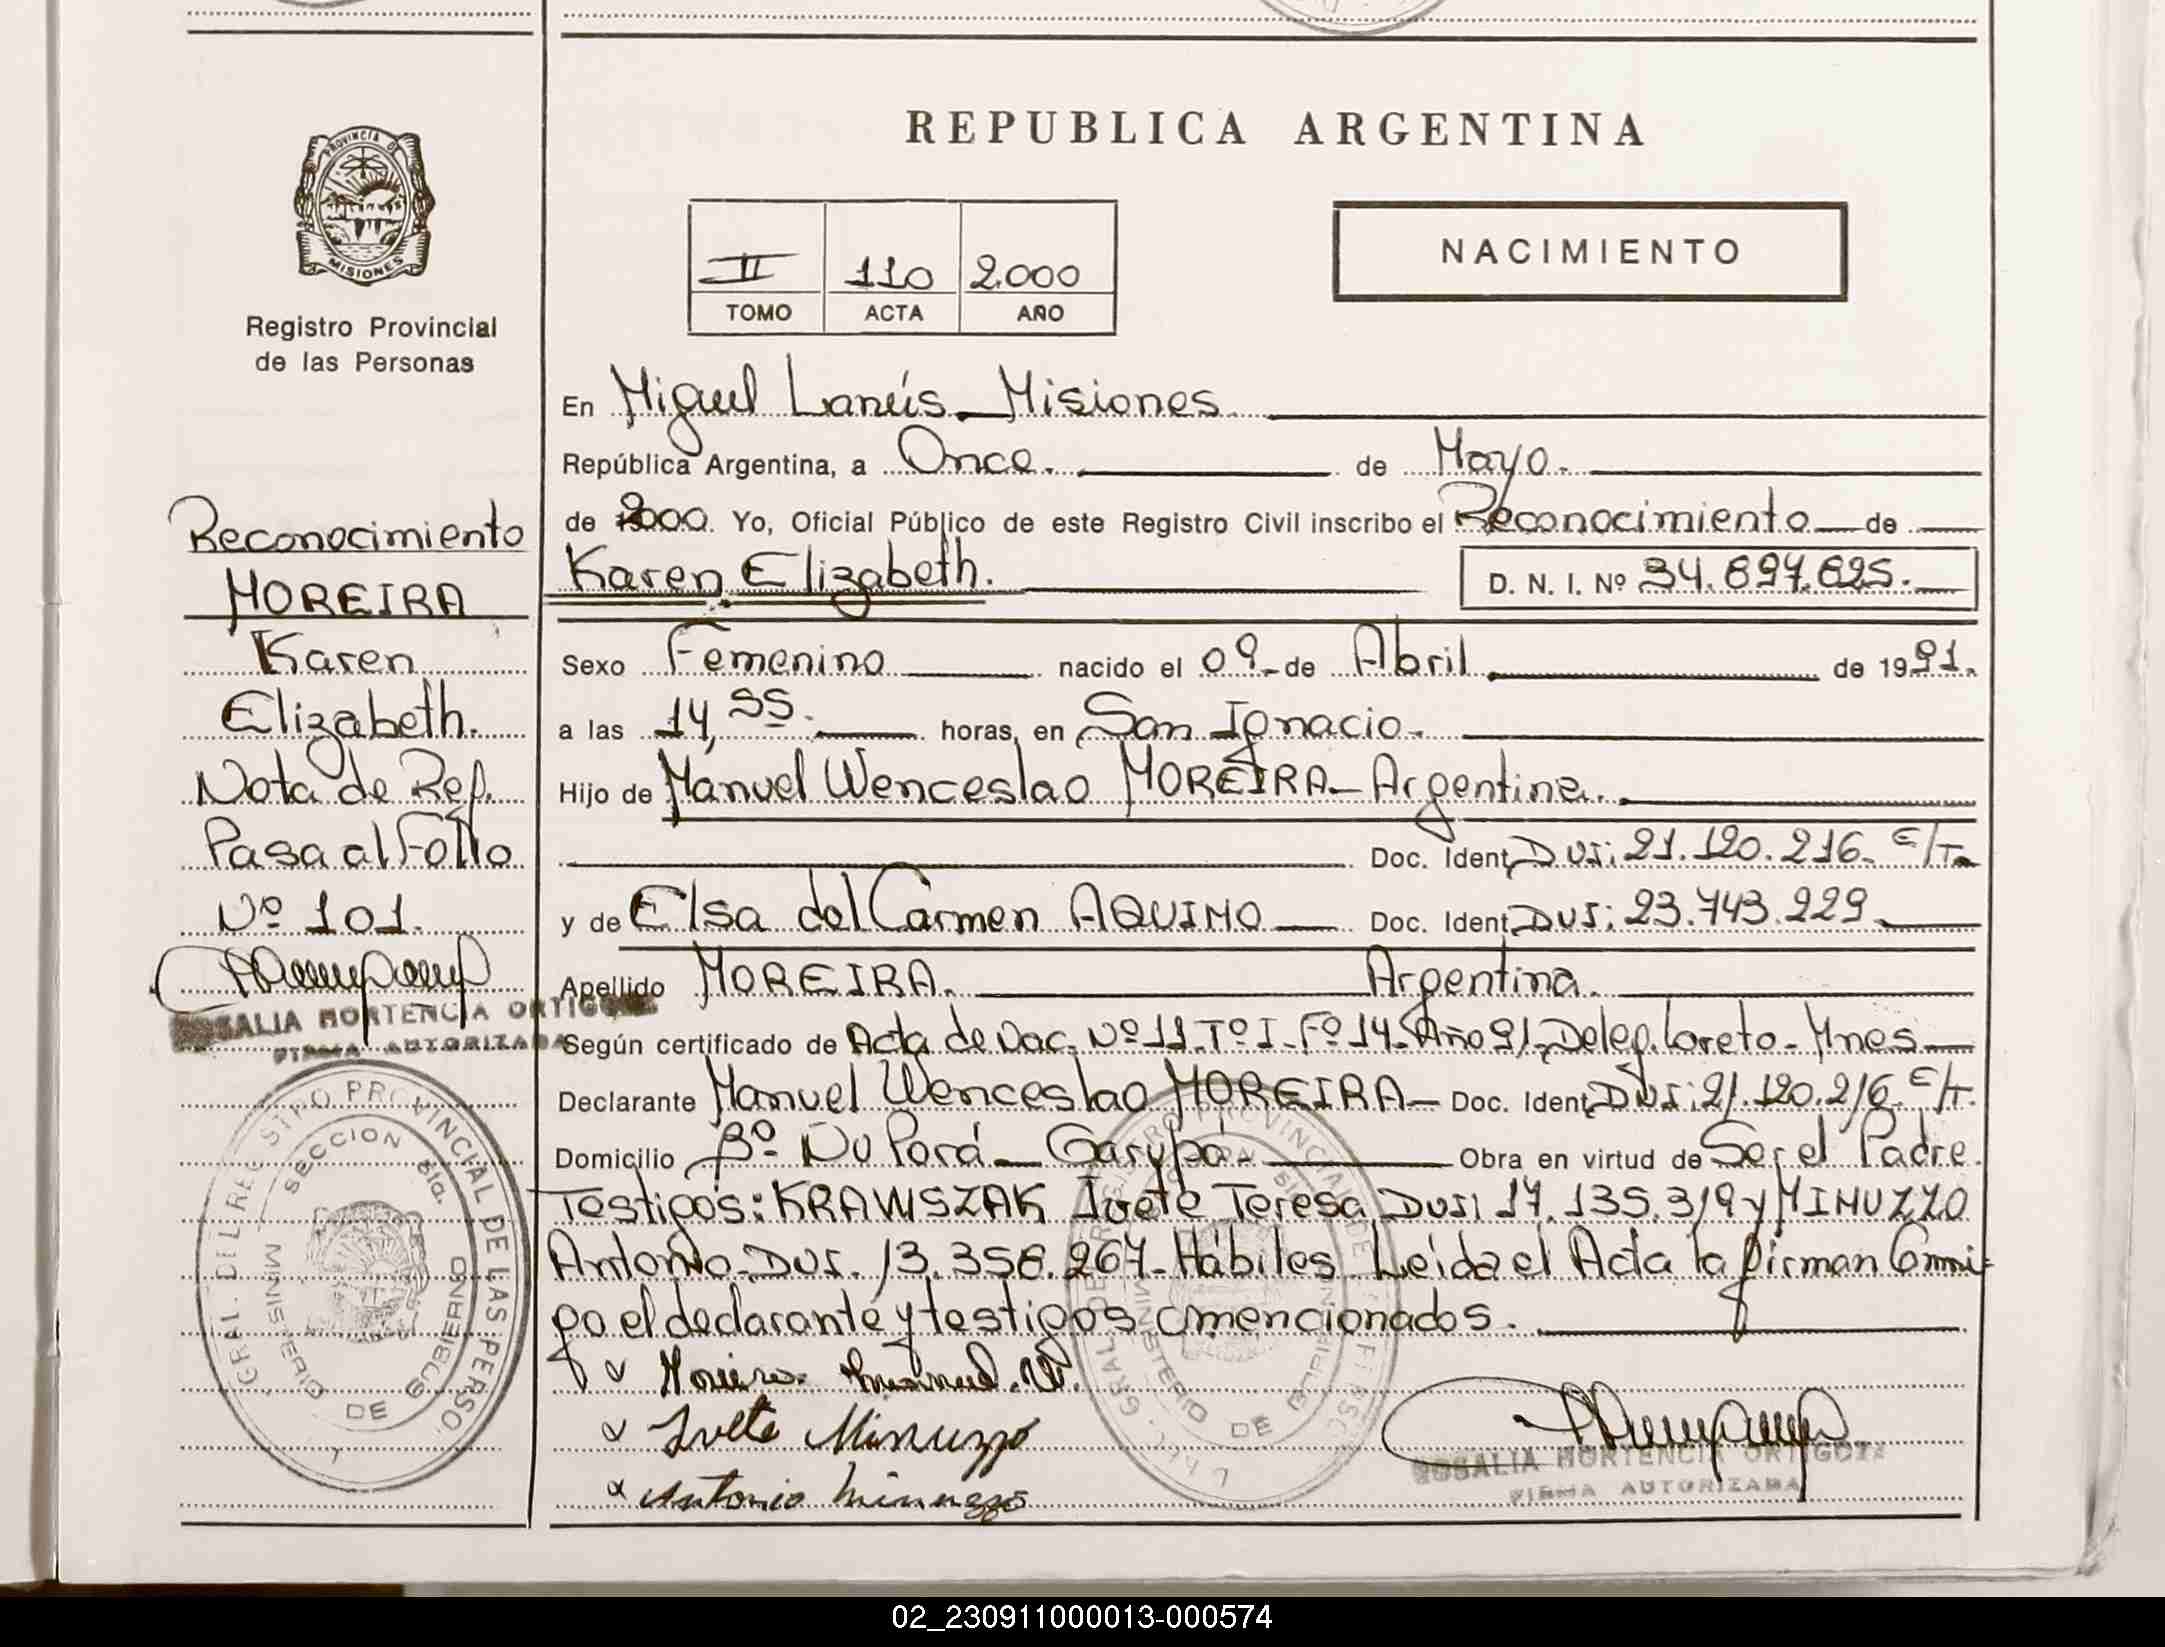 REPUBLICA ARGENTINA
PROVINCIA DE
MISIONES
Registro Provincial
de las Personas
II 110 2.000
TOMO ACTA AÑO
NACIMIENTO
En Miguel Lanús - Misiones.
República Argentina, a Once. de Mayo.
de 2000. Yo, Oficial Público de este Registro Civil inscribo el Reconocimiento de
Karen Elizabeth. D. N. I. Nº 34.697.625.
Sexo Femenino nacido el 09 - de Abril de 1991.
a las 14,55. horas, en San Ignacio.
Hijo de Manuel Wenceslao MOREIRA - Argentina.
Doc. Ident. DUI: 21.120.216. E/T.
y de Elsa del Carmen AQUINO Doc. Ident. DUI: 23.743.229
Apellido MOREIRA. Argentina.
Según certificado de Acta de Nac. Nº 11 - Tº I - Fº 14 - Año 91 - Deleg. Loreto - Mnes
Declarante Manuel Wenceslao MOREIRA - Doc. Ident. DUI: 21.120.216 E/T.
Domicilio Bº Ñu Porá - Garupá - Obra en virtud de Ser el Padre.
Testigos: KRAWSZAK Ivete Teresa DUI: 17.135.319 y MINUZZO
Antonio. DUI. 13.358.267 - Hábiles. Leída el Acta la firman Conmi-
go el declarante y testigos mencionados.
Ivete Minuzzo
Antonio Minuzzo
ROSALIA HORTENCIA
FIRMA AUTORIZADA
Reconocimiento
MOREIRA
Karen
Elizabeth.
Nota de Ref.
Pasa al Folio
Nº 101.
ROSALIA HORTENCIA
FIRMA AUTORIZADA
GRAL. DEL REGISTRO PROVINCIAL DE LAS PERSO
SECCION 5ta.
MINISTERIO DE GOBIERNO
MINISTERIO DE GOBIERNO
02_230911000013-000574